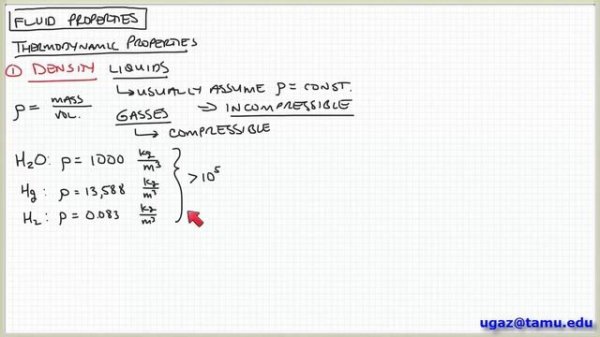 FLUID PROPERTIES
THERMODYNAMIC PROPERTIES
① DENSITY LIQUIDS
↳ USUALLY ASSUME ρ = CONST.
ρ = MASS / VOL.
GASSES ⇒ INCOMPRESSIBLE
↳ COMPRESSIBLE
H₂O: ρ = 1000 kg/m³
Hg: ρ = 13,588 kg/m³
H₂: ρ = 0.083 kg/m³
> 10⁵
ugaz@tamu.edu